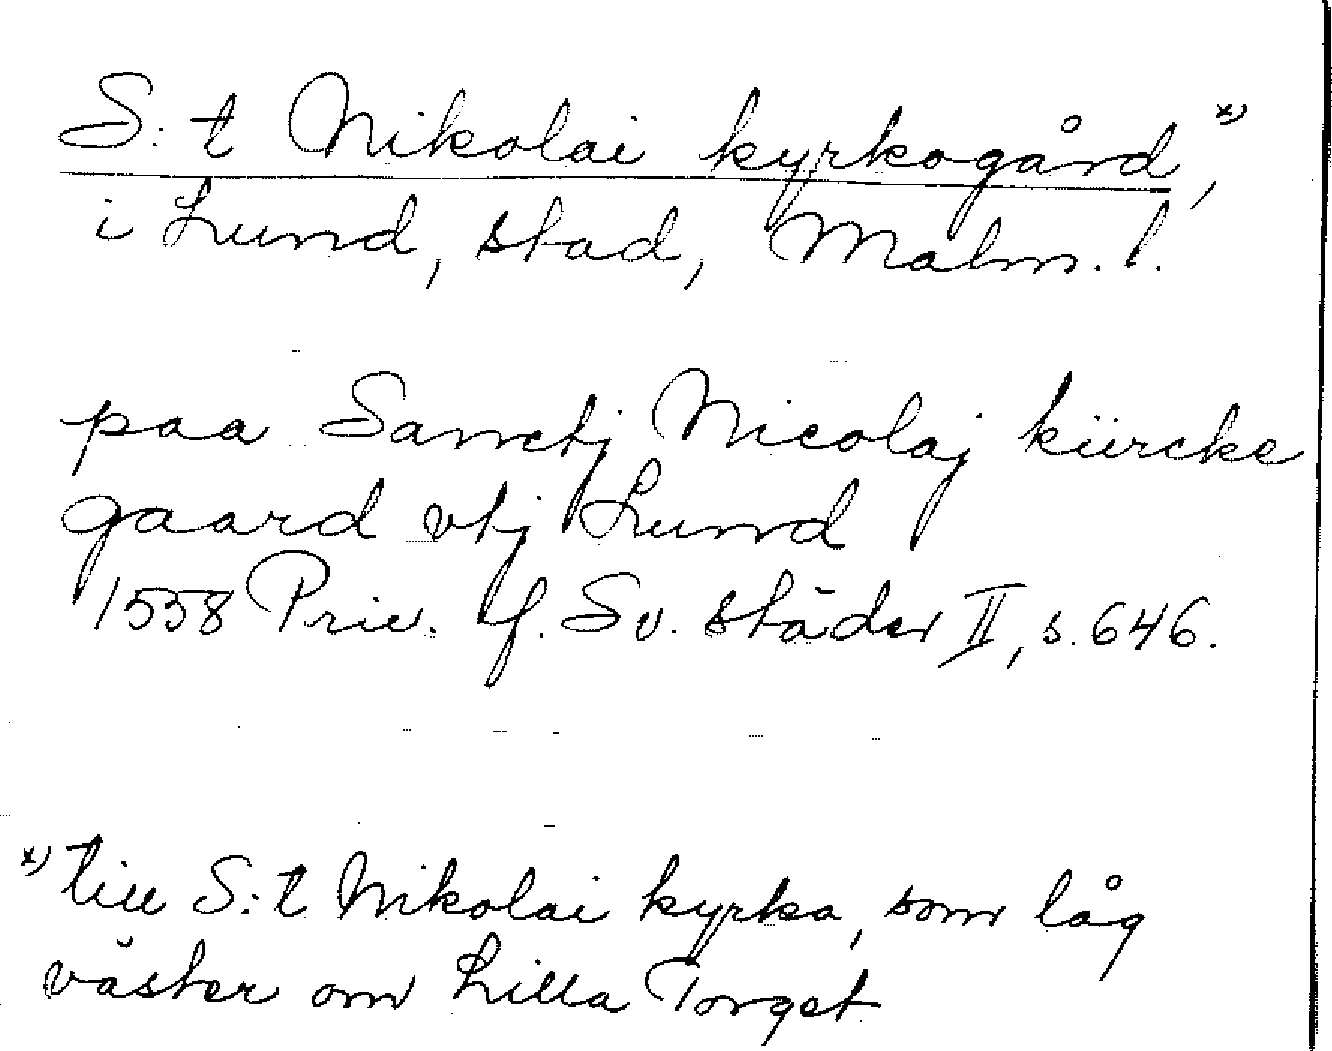 S:t Nikolai kyrkogård, x)
i Lund, stad, Malm. l.
paa Sanctj Nicolaj kiircke
gaard vtj Lund
1558 Priv. f. Sv. städer II, s. 646.
x) till S:t Nikolai kyrka, som låg
väster om Lilla Torget